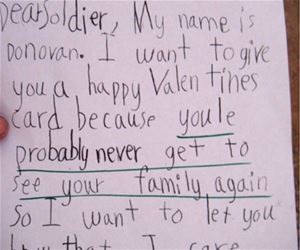 Dear Soldier, My name is
Donovan. I want to give
you a happy Valentines
card because youle
probably never get to
see your family again
So I want to let you
that I care